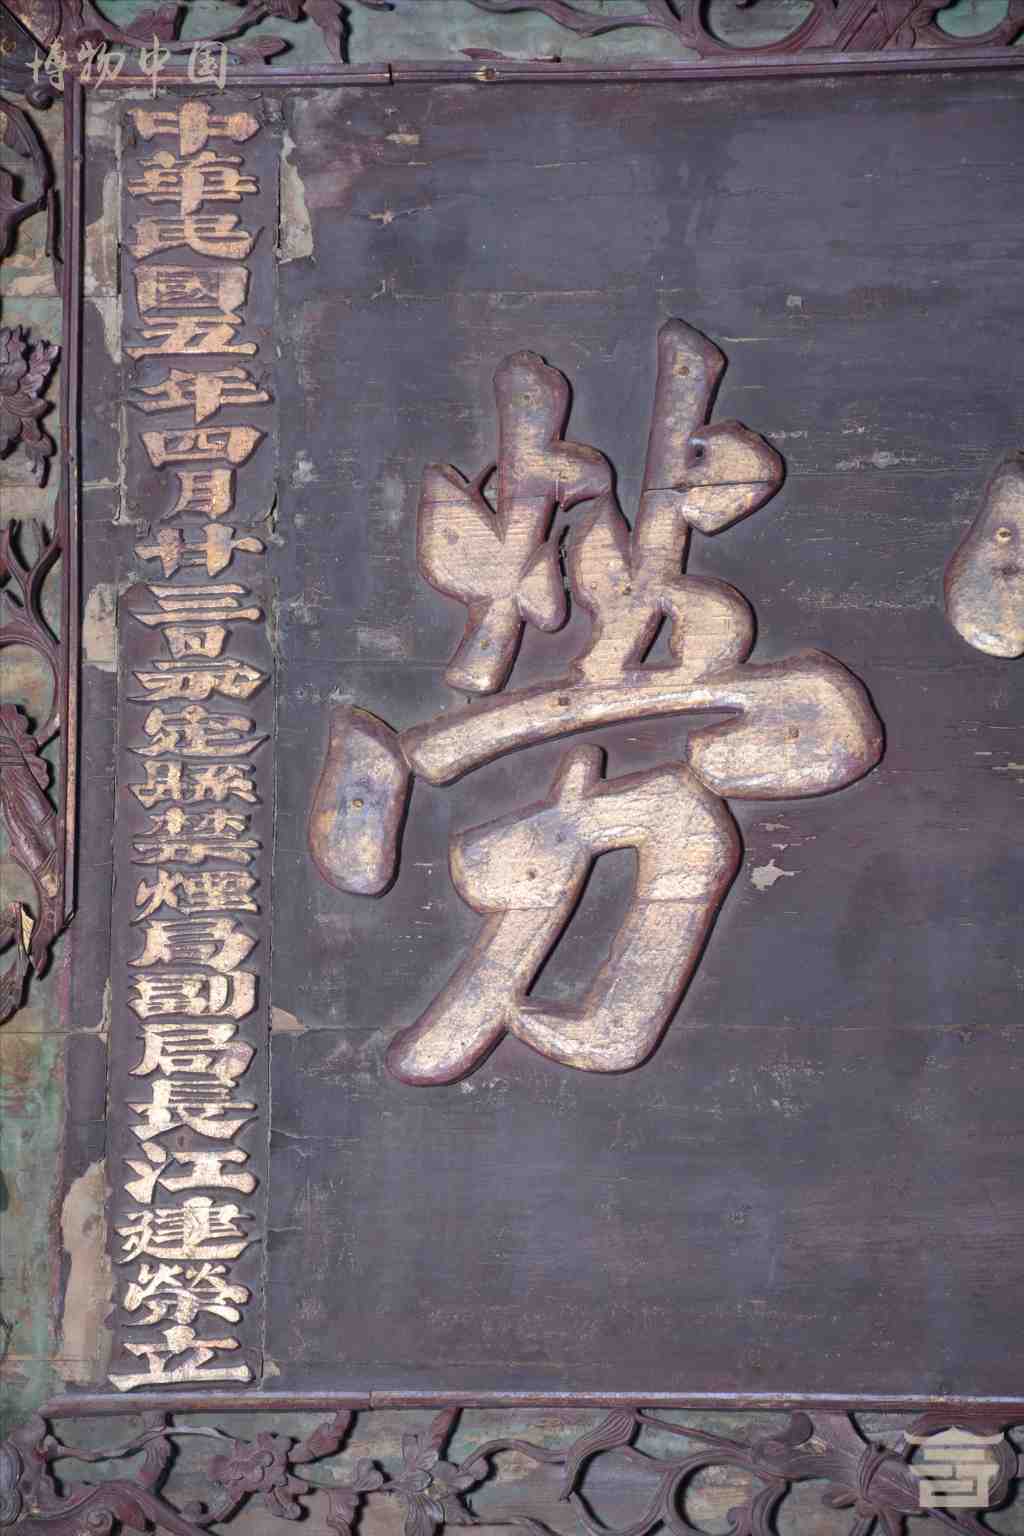 博物中国
勞
中華民國五年四月廿三日永定縣禁煙局副局長江建榮立